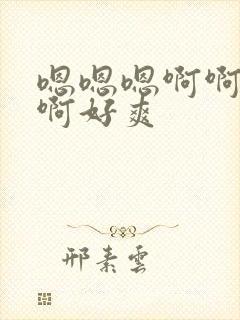 嗯嗯嗯啊啊
啊好爽
邢素雲